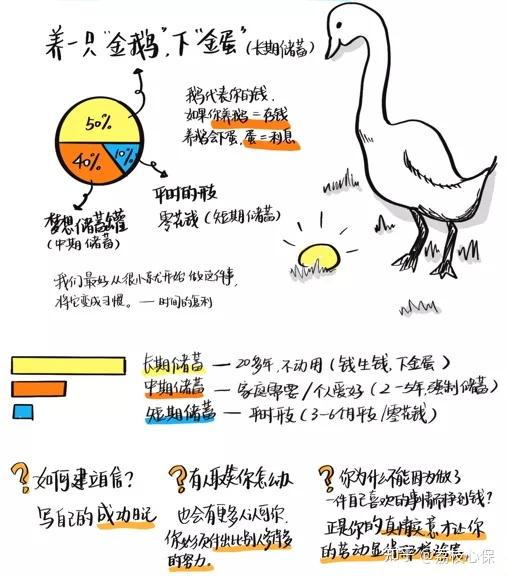 养一只"金鹅",下"金蛋"(长期储蓄)
50%
40%
10%
鹅代表你的钱,
如果你养鹅=存钱
养鹅会下蛋,蛋=利息.
平时的开支
零花钱(短期储蓄)
梦想储蓄罐
(中期储蓄)
我们最好从很小就开始做这件事,
将它变成习惯。—时间的复利
长期储蓄 — 20多年,不动用(钱生钱,下金蛋)
中期储蓄 — 家庭需要/个人爱好(2-5年,强制储蓄)
短期储蓄 — 平时开支(3-6个月开支/零花钱)
?如何建立自信?
写自己的成功日记
?有人取笑你怎么办
也会有更多人认可你.
你必须付出比别人多得多
的努力.
?你为什么不能因为做了
一件自己喜欢的事情而挣到钱?
正是你的真情实意才让你
的劳动显得
知乎 @荔枝心保